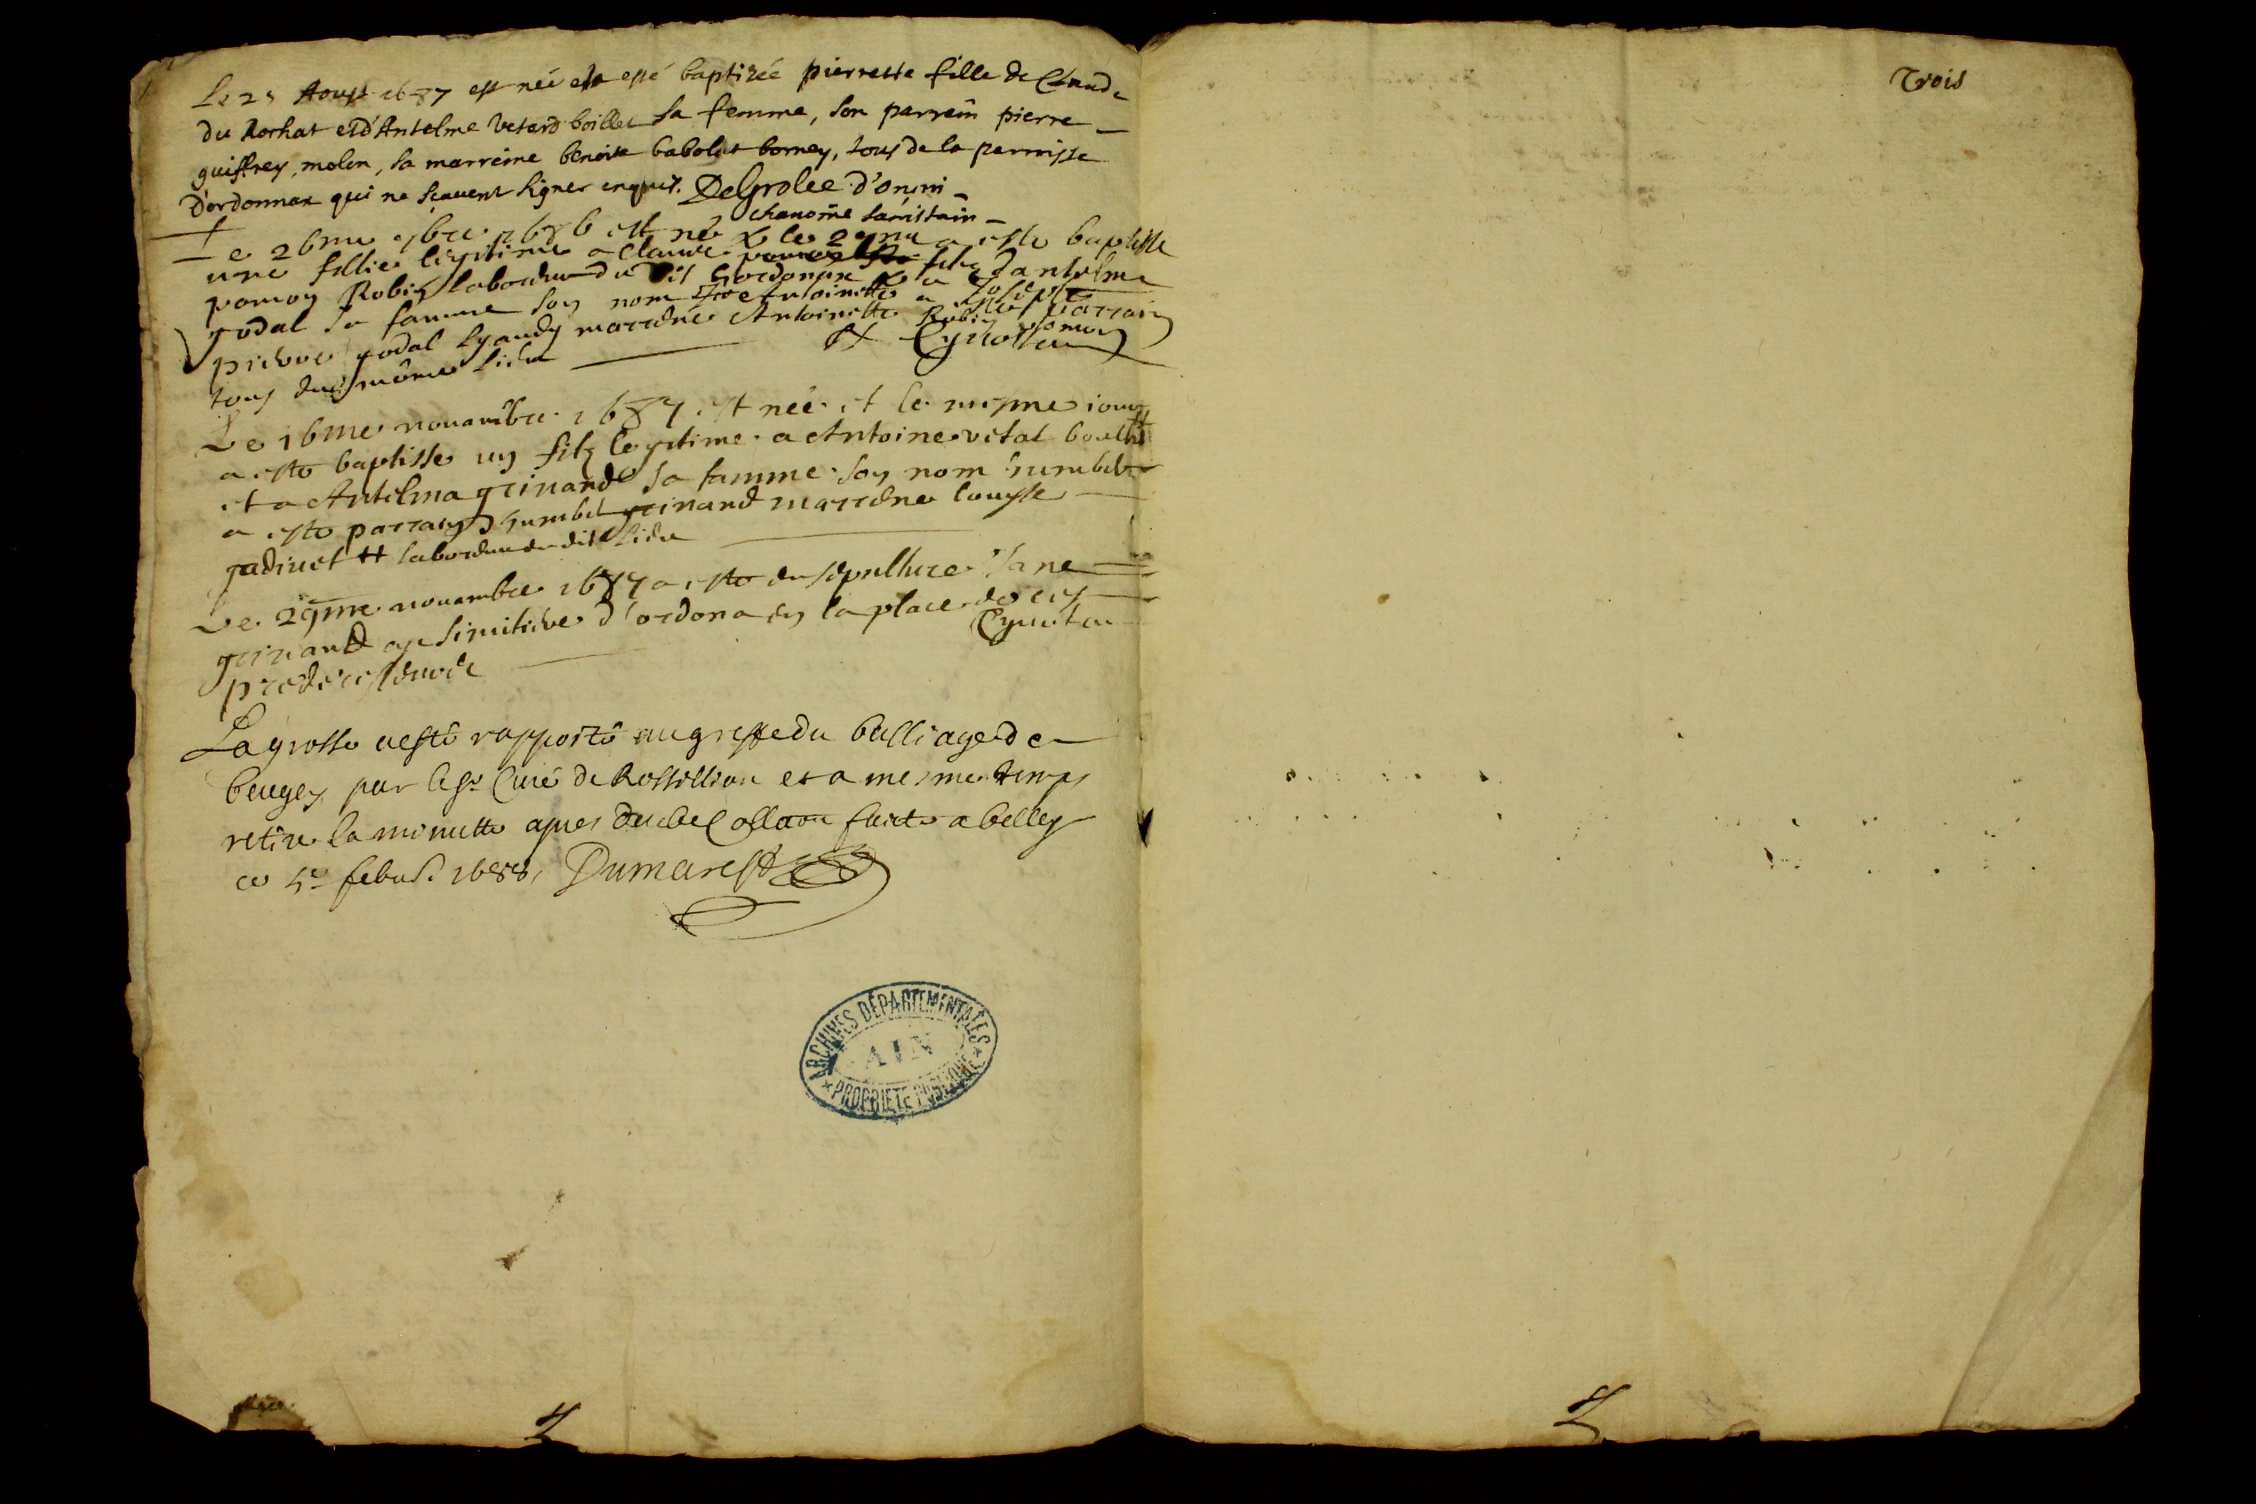 Le 25 Aoust 1687 est née et a esté baptizée pierrette fille de Claude
du Rochat et d'Antelme vetard boillet sa femme, son parrein pierre
guiffrey, molin, sa marreine benoite babolat borney, tous de la parroisse
D'ordonnax qui ne sçavent signer enquis. DeGrolee d'oncin
chanoine sacristain
Le 26me 7bre 1686 est né le 29me a este baptisse
une fillie legitime a Claude fils dantelme
pomoy Robin laboureur du dit hordonnax et a Joseph
godal sa famme son nom Antoinette a este parrain
pierre godal marrene Antoinette Robin pomoy
tous du même lieu
Le 16me novambre 1687 est née et le mesme iour
a este baptisse un filz legitime a Antoine vetal boulliet
et a Antelma grinand sa famme son nom humbert
a este parrain humbert grinand marrene louyse
gadivet laboureur du dit lieu
Le 29me novambre 1687 a este ensepulture Jane
grinand au simitiere d'ordona en la place de ces
predecesseurs
La grosse a esté rapporté au greffe du balliage de
beugey par le Sr Curé de Rossillion et a mesme temps
retiré la minutte apres due Collaon faicte a belley
ce 5e febur. 1688, Dumarest
ARCHIVES DÉPARTEMENTALES
AIN
PROPRIÉTÉ PUBLIQUE
Trois